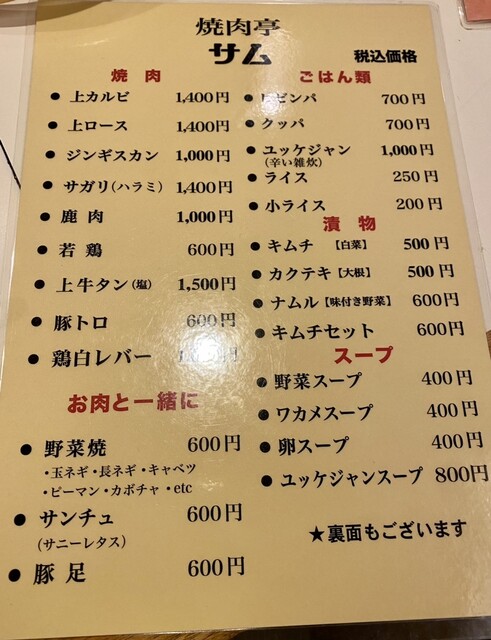 焼肉亭
サム
税込価格
焼 肉
● 上カルビ 1,400円
● 上ロース 1,400円
● ジンギスカン 1,000円
● サガリ(ハラミ) 1,400円
● 鹿 肉 1,000円
● 若 鶏 600円
● 上牛タン(塩) 1,500円
● 豚トロ 600円
● 鶏白レバー
お肉と一緒に
● 野菜焼 600円
・玉ネギ・長ネギ・キャベツ
・ピーマン・カボチャ・etc
● サンチュ 600円
(サニーレタス)
● 豚 足 600円
ごはん類
● ビビンバ 700円
● クッパ 700円
● ユッケジャン 1,000円
(辛い雑炊)
● ライス 250円
● 小ライス 200円
漬 物
● キムチ 【白菜】 500円
● カクテキ【大根】 500円
● ナムル【味付き野菜】 600円
● キムチセット 600円
スープ
● 野菜スープ 400円
● ワカメスープ 400円
● 卵スープ 400円
● ユッケジャンスープ 800円
★裏面もございます